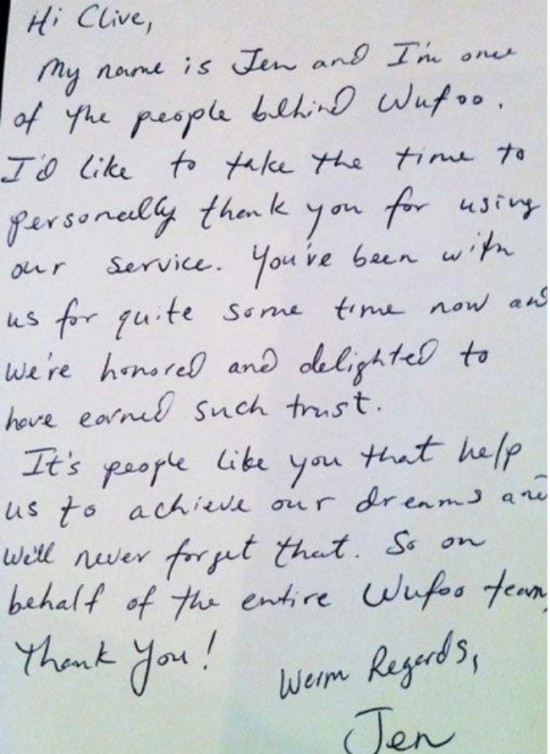 Hi Clive,
My name is Jen and I'm one
of the people behind Wufoo.
I'd like to take the time to
personally thank you for using
our service. You've been with
us for quite some time now and
we're honored and delighted to
have earned such trust.
It's people like you that help
us to achieve our dreams and
we'll never forget that. So on
behalf of the entire Wufoo team,
Thank You!
Warm Regards,
Jen